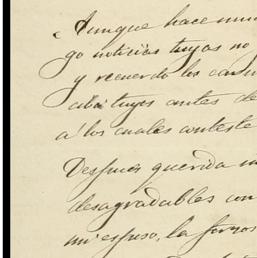 Aunque hace mu
go noticias tuyas no
y recuerdo los car
cibí tuyas antes de
a los cuales contesté
Despues querida m
desagradables con
mi esposo, la forzos